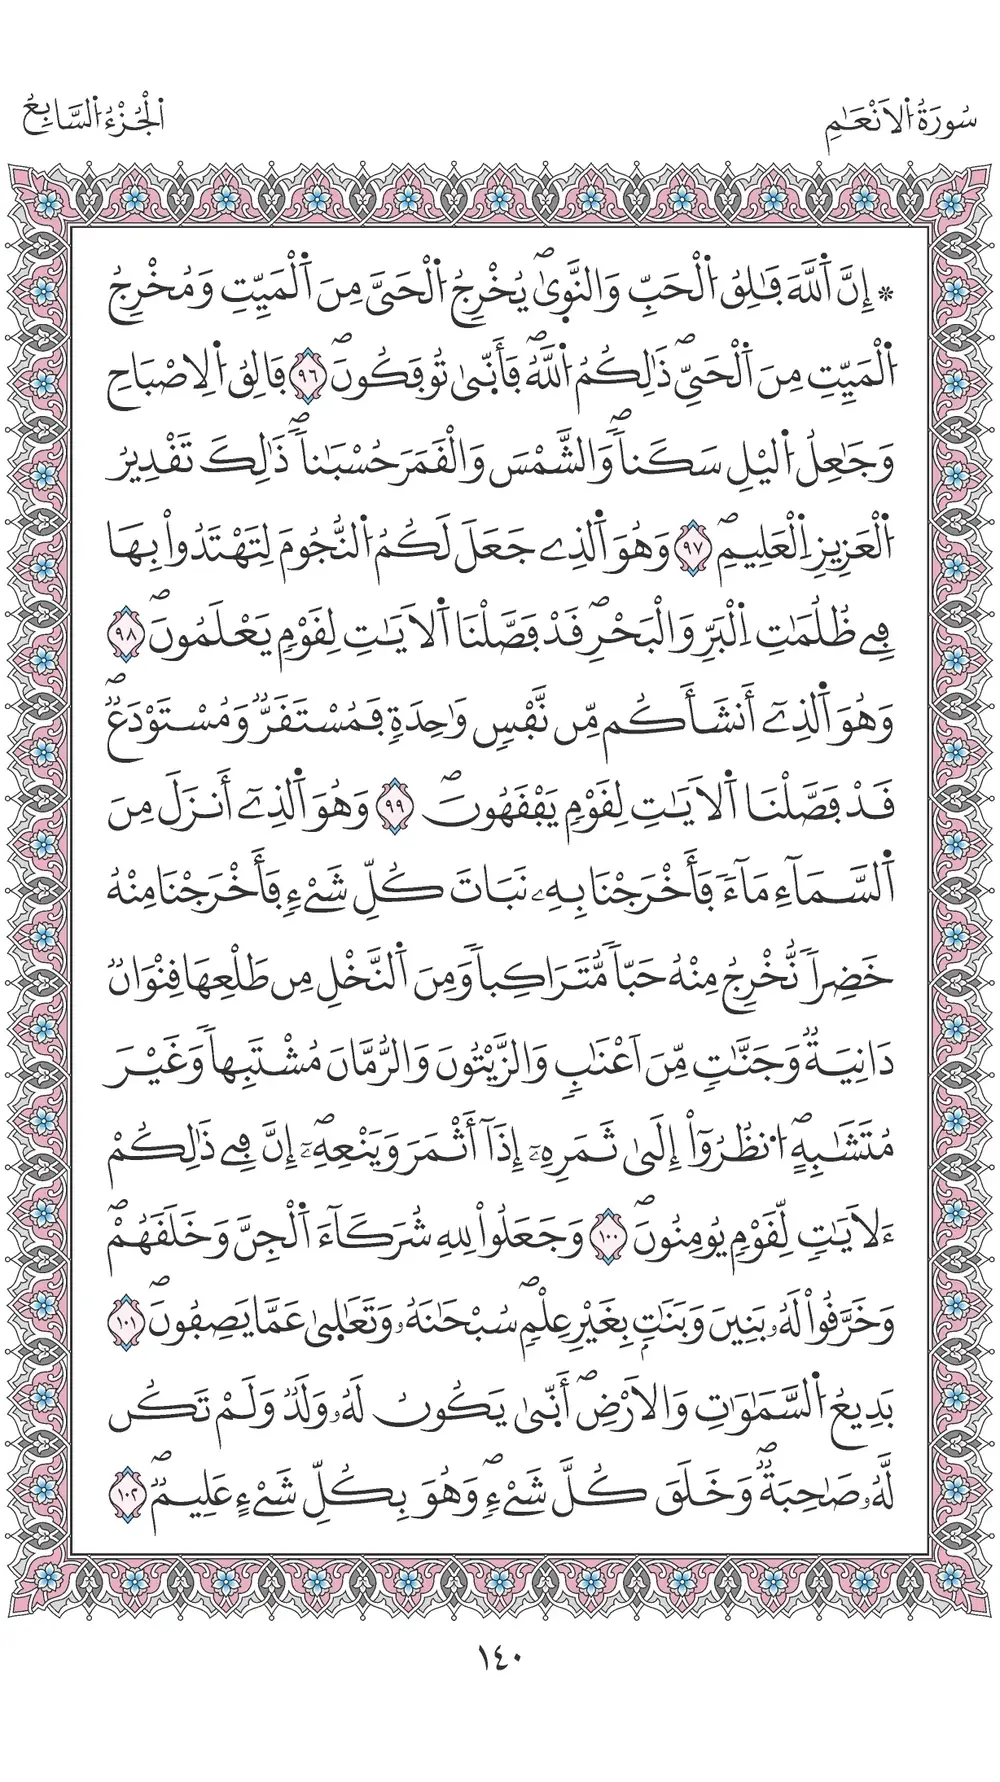 سُورَةُ اُ۬لَانْعَٰمِ
اَ۬لْجُزْءُ اُ۬لسَّابِعُ
۞ إِنَّ اَ۬للَّهَ فَٰلِقُ اُ۬لْحَبِّ وَالنَّو۪يٰۖ يُخْرِجُ اُ۬لْحَيَّ مِنَ اَ۬لْمَيِّتِ وَمُخْرِجُ
اُ۬لْمَيِّتِ مِنَ اَ۬لْحَيِّۖ ذَٰلِكُمُ اُ۬للَّهُۖ فَأَنّ۪يٰ تُوفَكُونَۖ ٩٦ فَالِقُ اُ۬لِاصْبَاحِ
وَجَٰعِلُ اُ۬ليْلِ سَكَناٗۖ وَالشَّمْسَ وَالْقَمَرَ حُسْبَٰناٗۖ ذَٰلِكَ تَقْدِيرُ
اُ۬لْعَزِيزِ اِ۬لْعَلِيمِۖ ٩٧ وَهُوَ اَ۬لذِے جَعَلَ لَكُمُ اُ۬لنُّجُومَ لِتَهْتَدُواْ بِهَا
فِے ظُلُمَٰتِ اِ۬لْبَرِّ وَالْبَحْرِۖ قَدْ فَصَّلْنَا اَ۬لَايَٰتِ لِقَوْمٖ يَعْلَمُونَۖ ٩٨
وَهُوَ اَ۬لذِےٓ أَنشَأَكُم مِّن نَّفْسٖ وَٰحِدَةٖ فَمُسْتَقَرّٞ وَمُسْتَوْدَعٞۖ
قَدْ فَصَّلْنَا اَ۬لَايَٰتِ لِقَوْمٖ يَفْقَهُونَۖ ٩٩ وَهُوَ اَ۬لذِےٓ أَنزَلَ مِنَ
اَ۬لسَّمَآءِ مَآءٗ فَأَخْرَجْنَا بِهِۦ نَبَاتَ كُلِّ شَےْءٖ فَأَخْرَجْنَا مِنْهُ
خَضِراٗ نُّخْرِجُ مِنْهُ حَبّاٗ مُّتَرَاكِباٗ وَمِنَ اَ۬لنَّخْلِ مِن طَلْعِهَا قِنْوَانٞ
دَانِيَةٞ وَجَنَّٰتٖ مِّنَ اَعْنَٰبٖ وَالزَّيْتُونَ وَالرُّمَّانَ مُشْتَبِهاٗ وَغَيْرَ
مُتَشَٰبِهٍۖ اُ۟نظُرُوٓاْ إِلَىٰ ثَمَرِهِۦٓ إِذَآ أَثْمَرَ وَيَنْعِهِۦٓۖ إِنَّ فِے ذَٰلِكُمْ
ءَلَايَٰتٖ لِّقَوْمٖ يُومِنُونَۖ ١٠٠ وَجَعَلُواْ لِلهِ شُرَكَآءَ اَ۬لْجِنَّ وَخَلَقَهُمْۖ
وَخَرَّقُواْ لَهُۥ بَنِينَ وَبَنَٰتِۢ بِغَيْرِ عِلْمٖۖ سُبْحَٰنَهُۥ وَتَعَٰل۪يٰ عَمَّا يَصِفُونَۖ ١٠١
بَدِيعُ اُ۬لسَّمَٰوَٰتِ وَالَارْضِۖ أَنّ۪يٰ يَكُونُ لَهُۥ وَلَدٞ وَلَمْ تَكُن
لَّهُۥ صَٰحِبَةٞۖ وَخَلَقَ كُلَّ شَےْءٖۖ وَهُوَ بِكُلِّ شَےْءٍ عَلِيمٞۖ ١٠٢
١٤٠